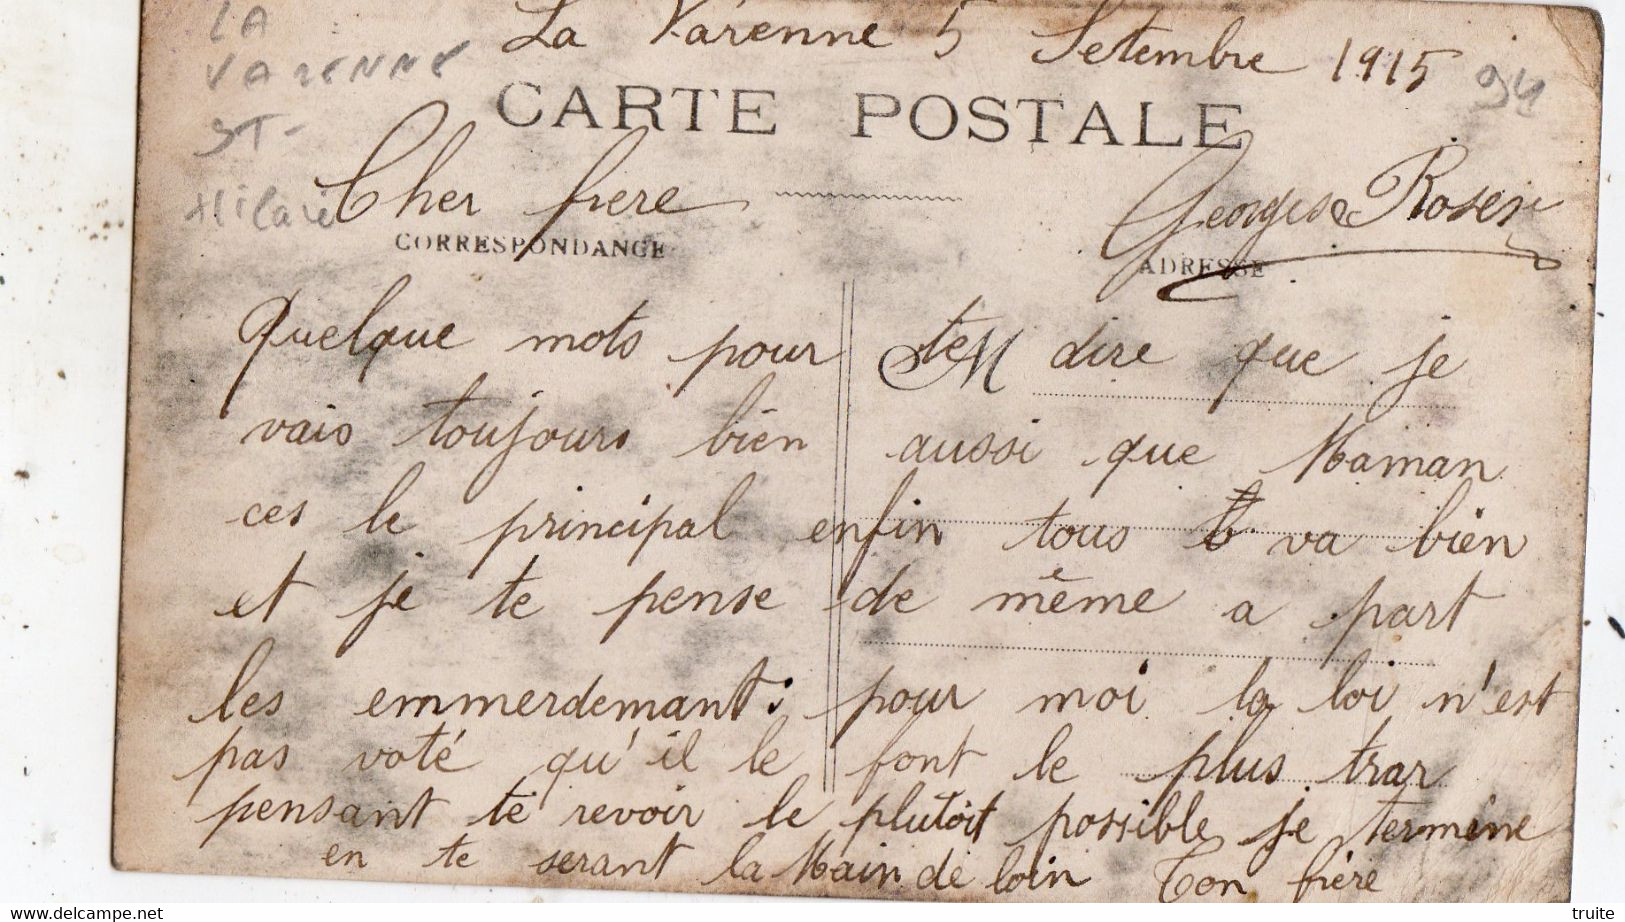 LA
VARENNE
ST-
Hilaire
La Varenne 5 Setembre 1915
94
CARTE POSTALE
Cher frere
Georges Rosen
CORRESPONDANCE
ADRESSE
Quelque mots pour te M dire que je
vais toujours bien aussi que Maman
ces le principal enfin tous va bien
et je te pense de même a part
les emmerdemant: pour moi la loi n'est
pas voté qu'il le font le plus trar
pensant te revoir le plutoit possible je termine
en te serant la Main de loin Ton frère
© delcampe.net
truite